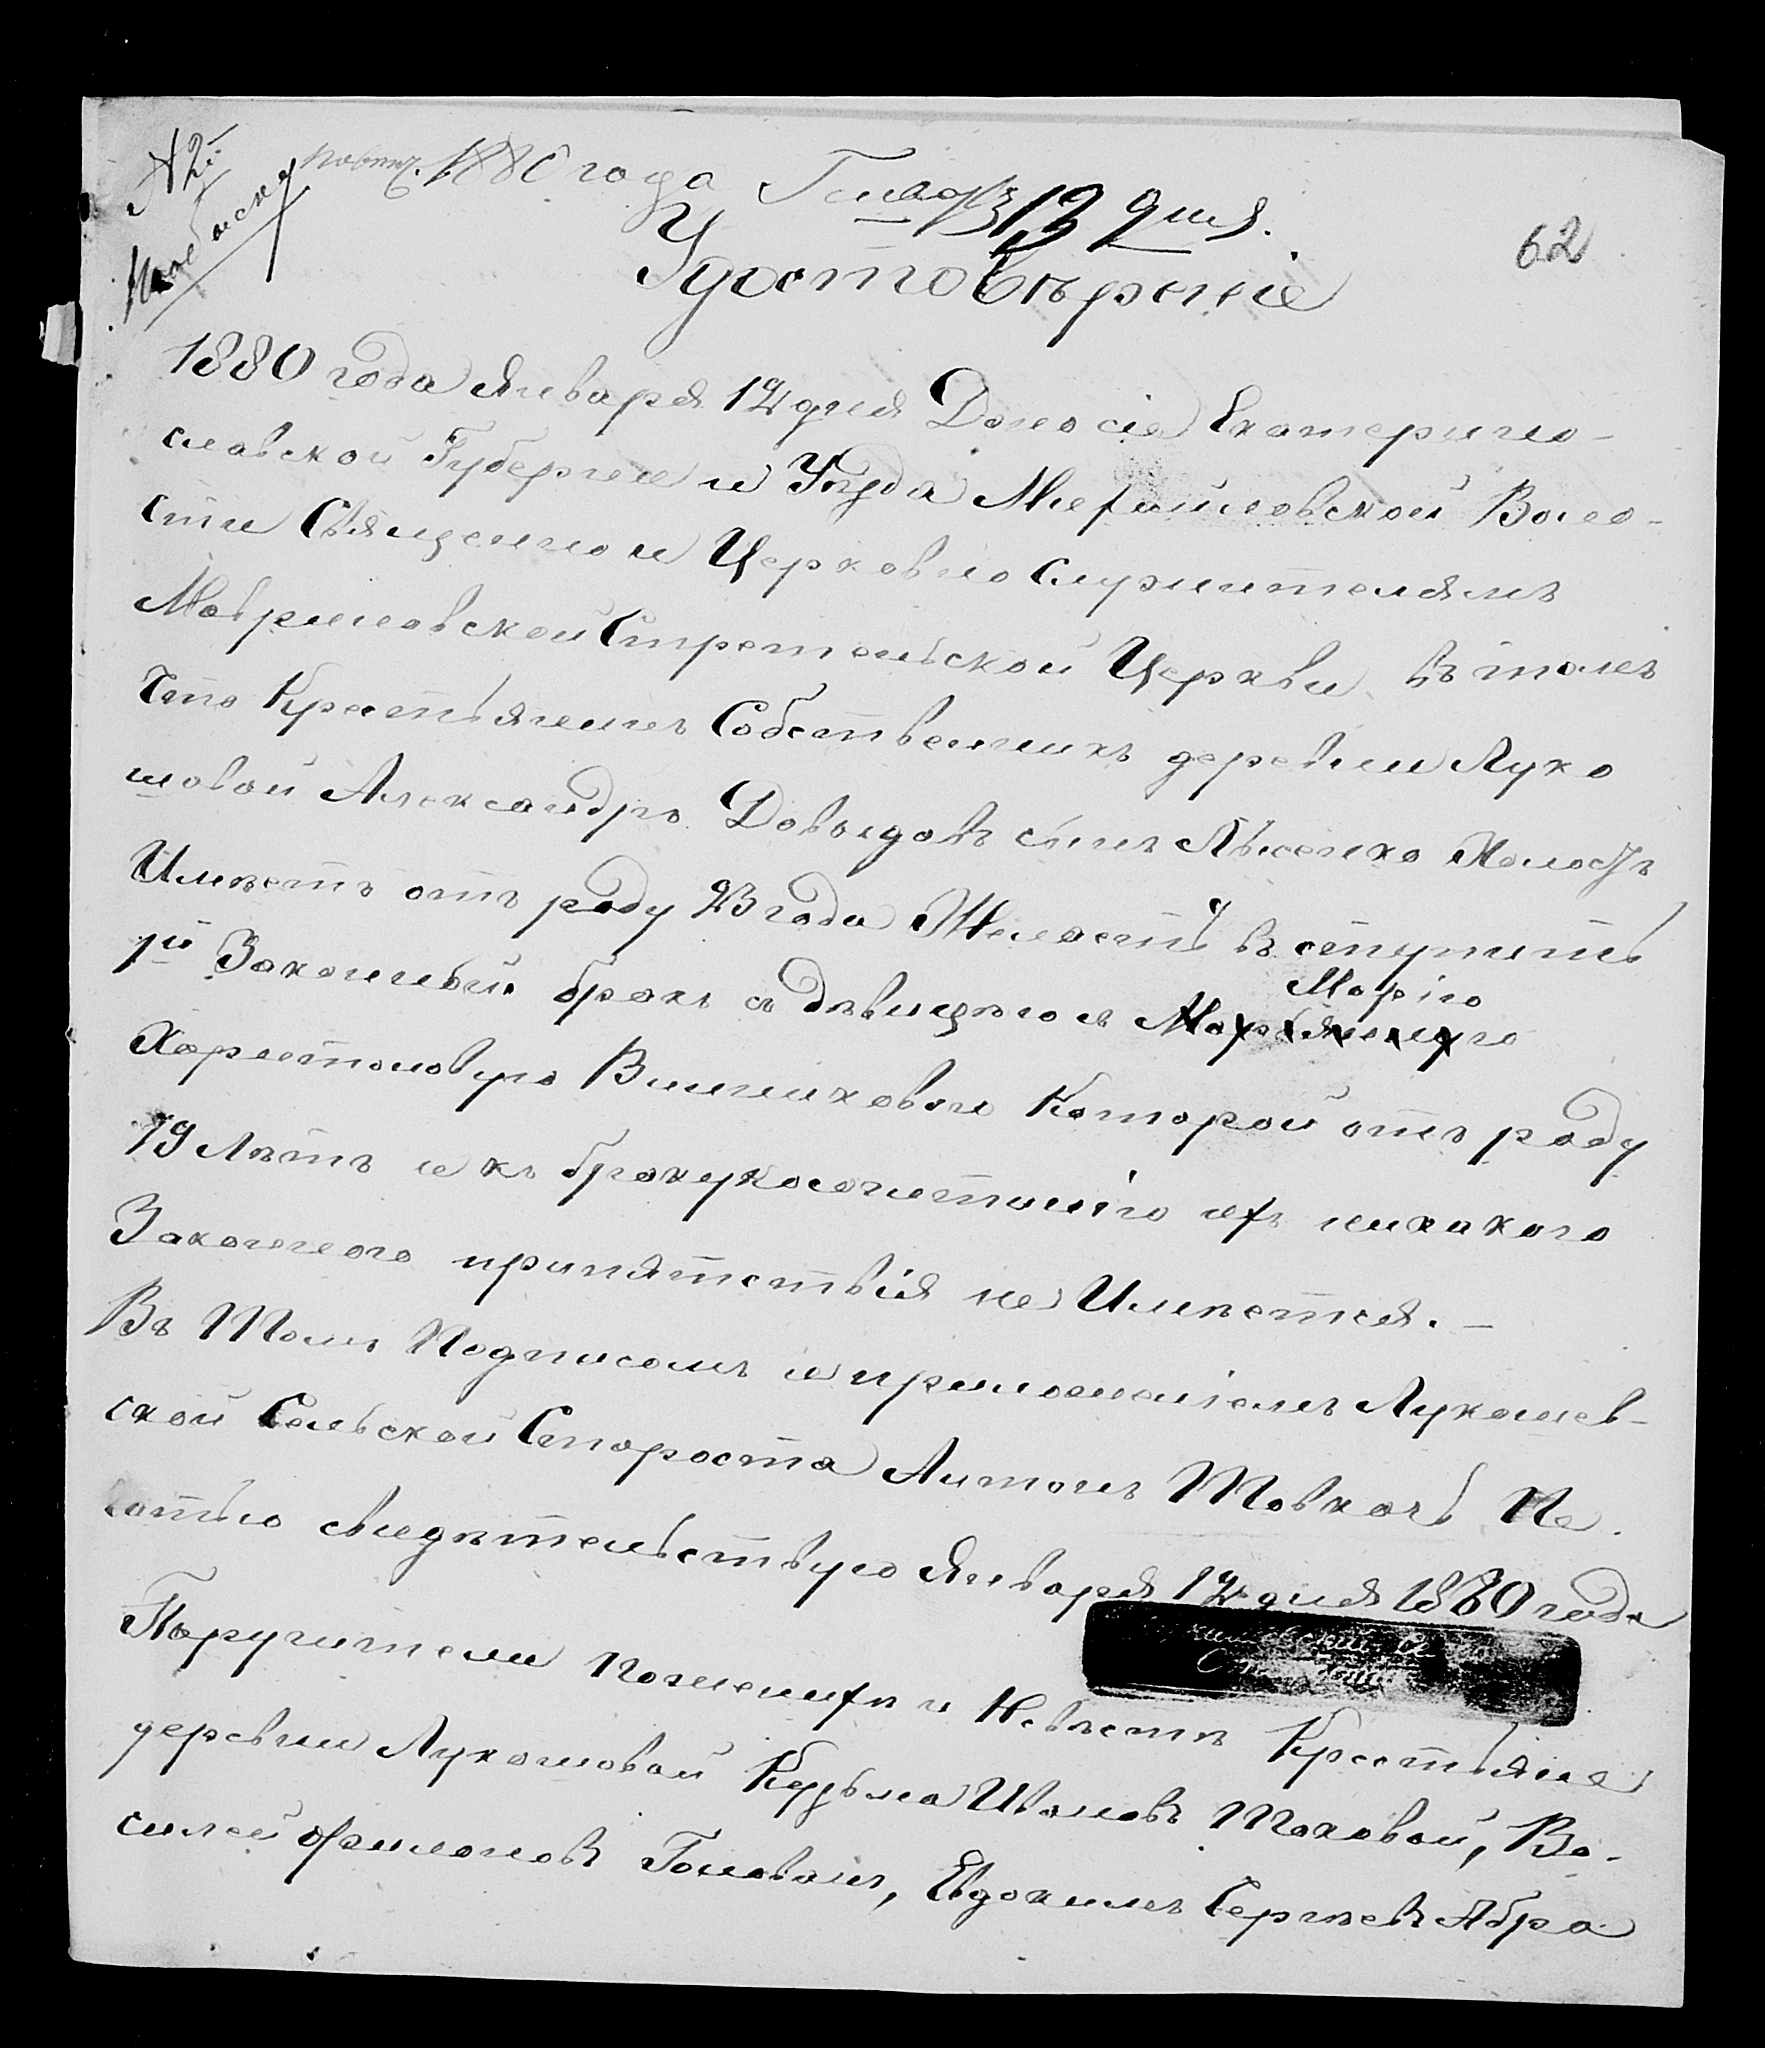 № 2й
повѣнч. 1880 года Генваря 13 дня.
62
Удостовѣреніе
1880 года Января 12 дня Дано сіе Екатерино-
славской Губерніи и Уѣзда Михайловской Воло-
сти Священно и Церковно служителямъ
Мавриновской Стретельской Церкви въ томъ
Что Крестьянинъ Собственникъ деревни Луко
шовой Александръ Довыдовъ сынъ Лысенко Холостъ
Имѣетъ отъ роду 23 года Желаетъ вступить
Марію
1й Законный бракъ съ дѣвицѣю
Харитоновую Винниковою Которой отъ роду
19 Лѣтъ и къ бракукосочетанію ихъ никакого
Законного припятствія не Имѣется. –
Въ Томъ Подписомъ и приложеніемъ Лукошев-
ской Сельской Староста Антонъ Товкачъ Пе.
чатью свидѣтельствую Января 12 дня 1880 года
Поручители по женихѣ и Невѣстѣ Крестьяне
деревни Лукошовой Кузьма Ивановъ Токовой, Ва-
силей Филоновъ Головань, Евдокимъ Сергѣевъ Абра